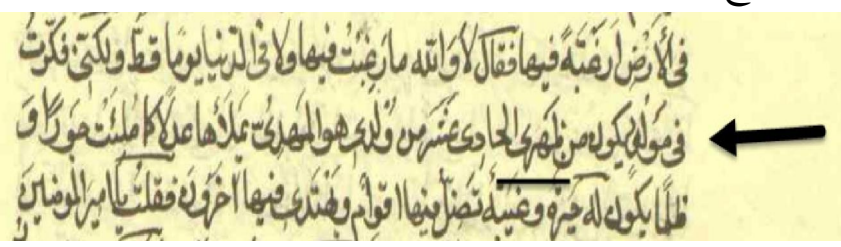 في الأرض أَرَغْبَةً فيها فقال لا وَالله ما رَغِبْتُ فيها ولا في الدنيا يومًا قطّ ولكنّي فكّرتُ
في مولود يكون من ظهري الحادي عَشَر من وُلدي هو المَهديّ يَملَأها عدلًا كما مُلِئَت جَورًا وَ
ظلمًا يكون له حَيرَة وغَيبَة تَضلّ فيها اقوام ويَهتَدي فيها آخرون فقلت يا امير المؤمنين